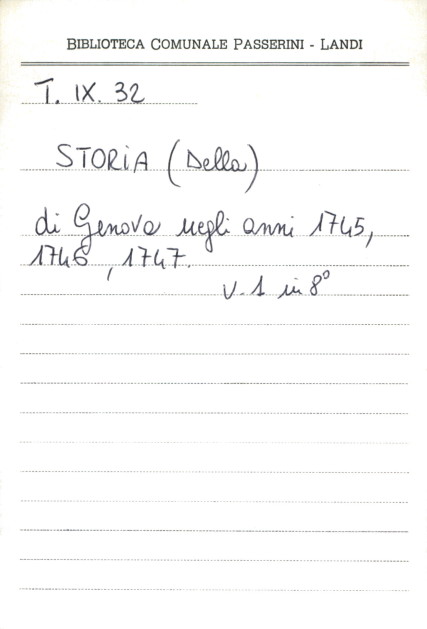 BIBLIOTECA COMUNALE PASSERINI - LANDI
T. IX. 32
STORIA (Della)
di Genova negli anni 1745,
1746, 1747.
V. 1 in 8°